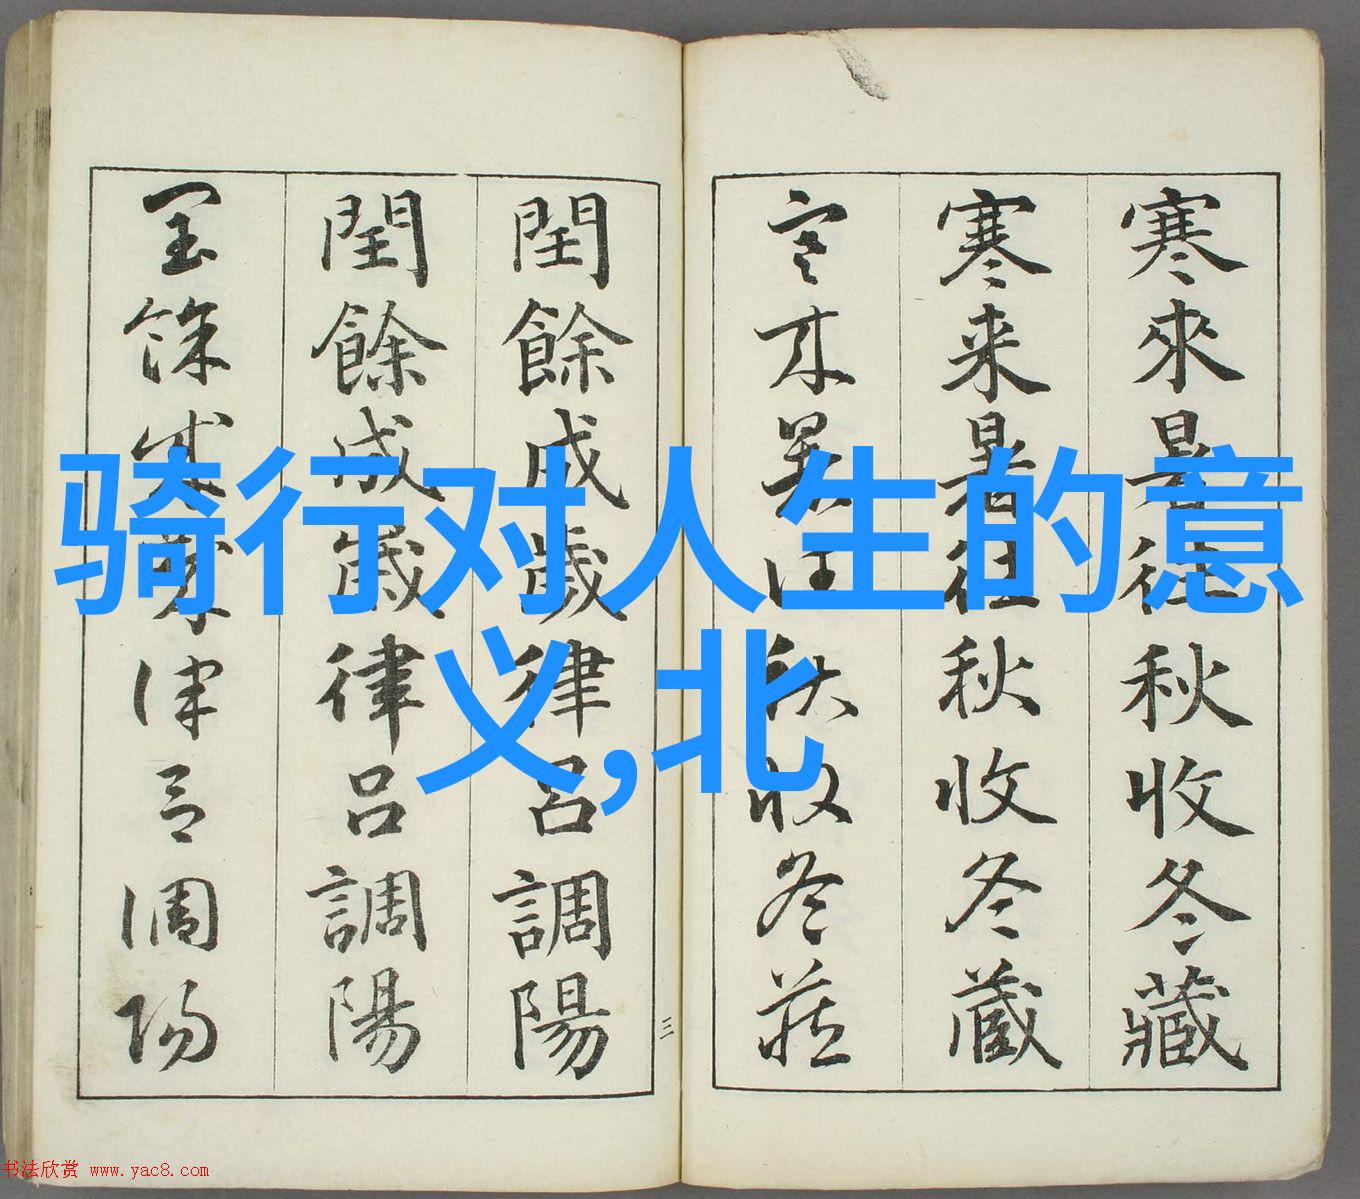 骑行对人生的意
义,北
寒來暑往秋收冬藏
寒来暑往秋收冬藏
寒来暑往秋收冬藏
閏餘成歲律呂調陽
閏餘成歲律呂調陽
閏餘成歲律呂調陽
三
书法欣赏 www.yac8.com